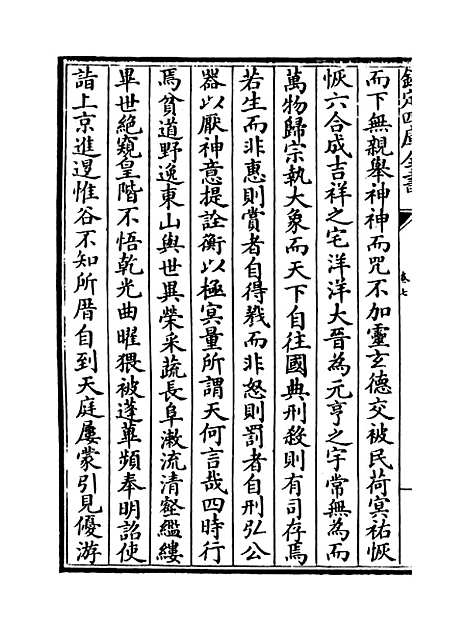 欽定四庫全書
卷七
而下無親舉神神而咒不加靈玄德交被民荷冥祐恢
恢六合成吉祥之宅洋洋大晉為元亨之宇常無為而
萬物歸宗執大象而天下自往國典刑殺則有司存焉
若生而非惠則賞者自得戮而非怒則罰者自刑弘公
器以厭神意提詮衡以極冥量所謂天何言哉四時行
焉貧道野逸東山與世異榮采蔬長阜漱流清壑繿縷
畢世絶窺皇階不悟乾光曲曜猥被蓬蓽頻奉明詔使
詣上京進退惟谷不知所厝自到天庭屢蒙引見優游